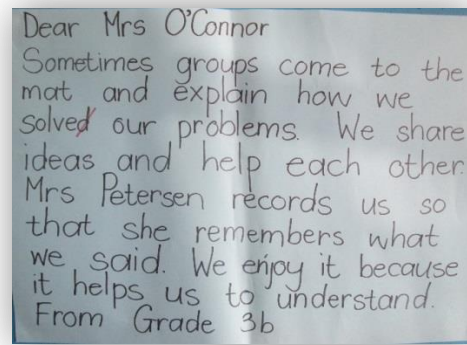 Dear Mrs O'Connor
Sometimes groups come to the
mat and explain how we
solved our problems. We share
ideas and help each other.
Mrs Petersen records us so
that she remembers what
we said. We enjoy it because
it helps us to understand.
From Grade 3b